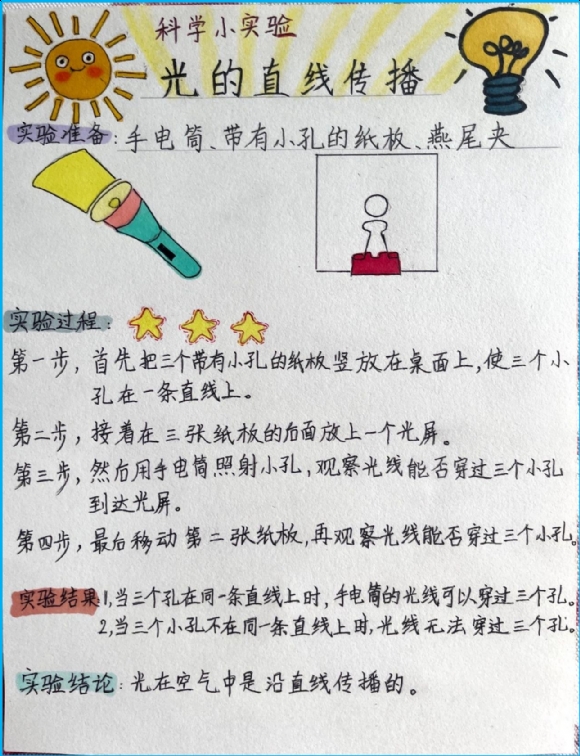 科学小实验
光的直线传播
实验准备：手电筒、带有小孔的纸板、燕尾夹
实验过程：
第一步，首先把三个带有小孔的纸板竖放在桌面上，使三个小
孔在一条直线上。
第二步，接着在三张纸板的后面放上一个光屏。
第三步，然后用手电筒照射小孔，观察光线能否穿过三个小孔
到达光屏。
第四步，最后移动第二张纸板，再观察光线能否穿过三个小孔。
实验结果1，当三个孔在同一条直线上时，手电筒的光线可以穿过三个孔。
2，当三个小孔不在同一条直线上时，光线无法穿过三个孔。
实验结论：光在空气中是沿直线传播的。